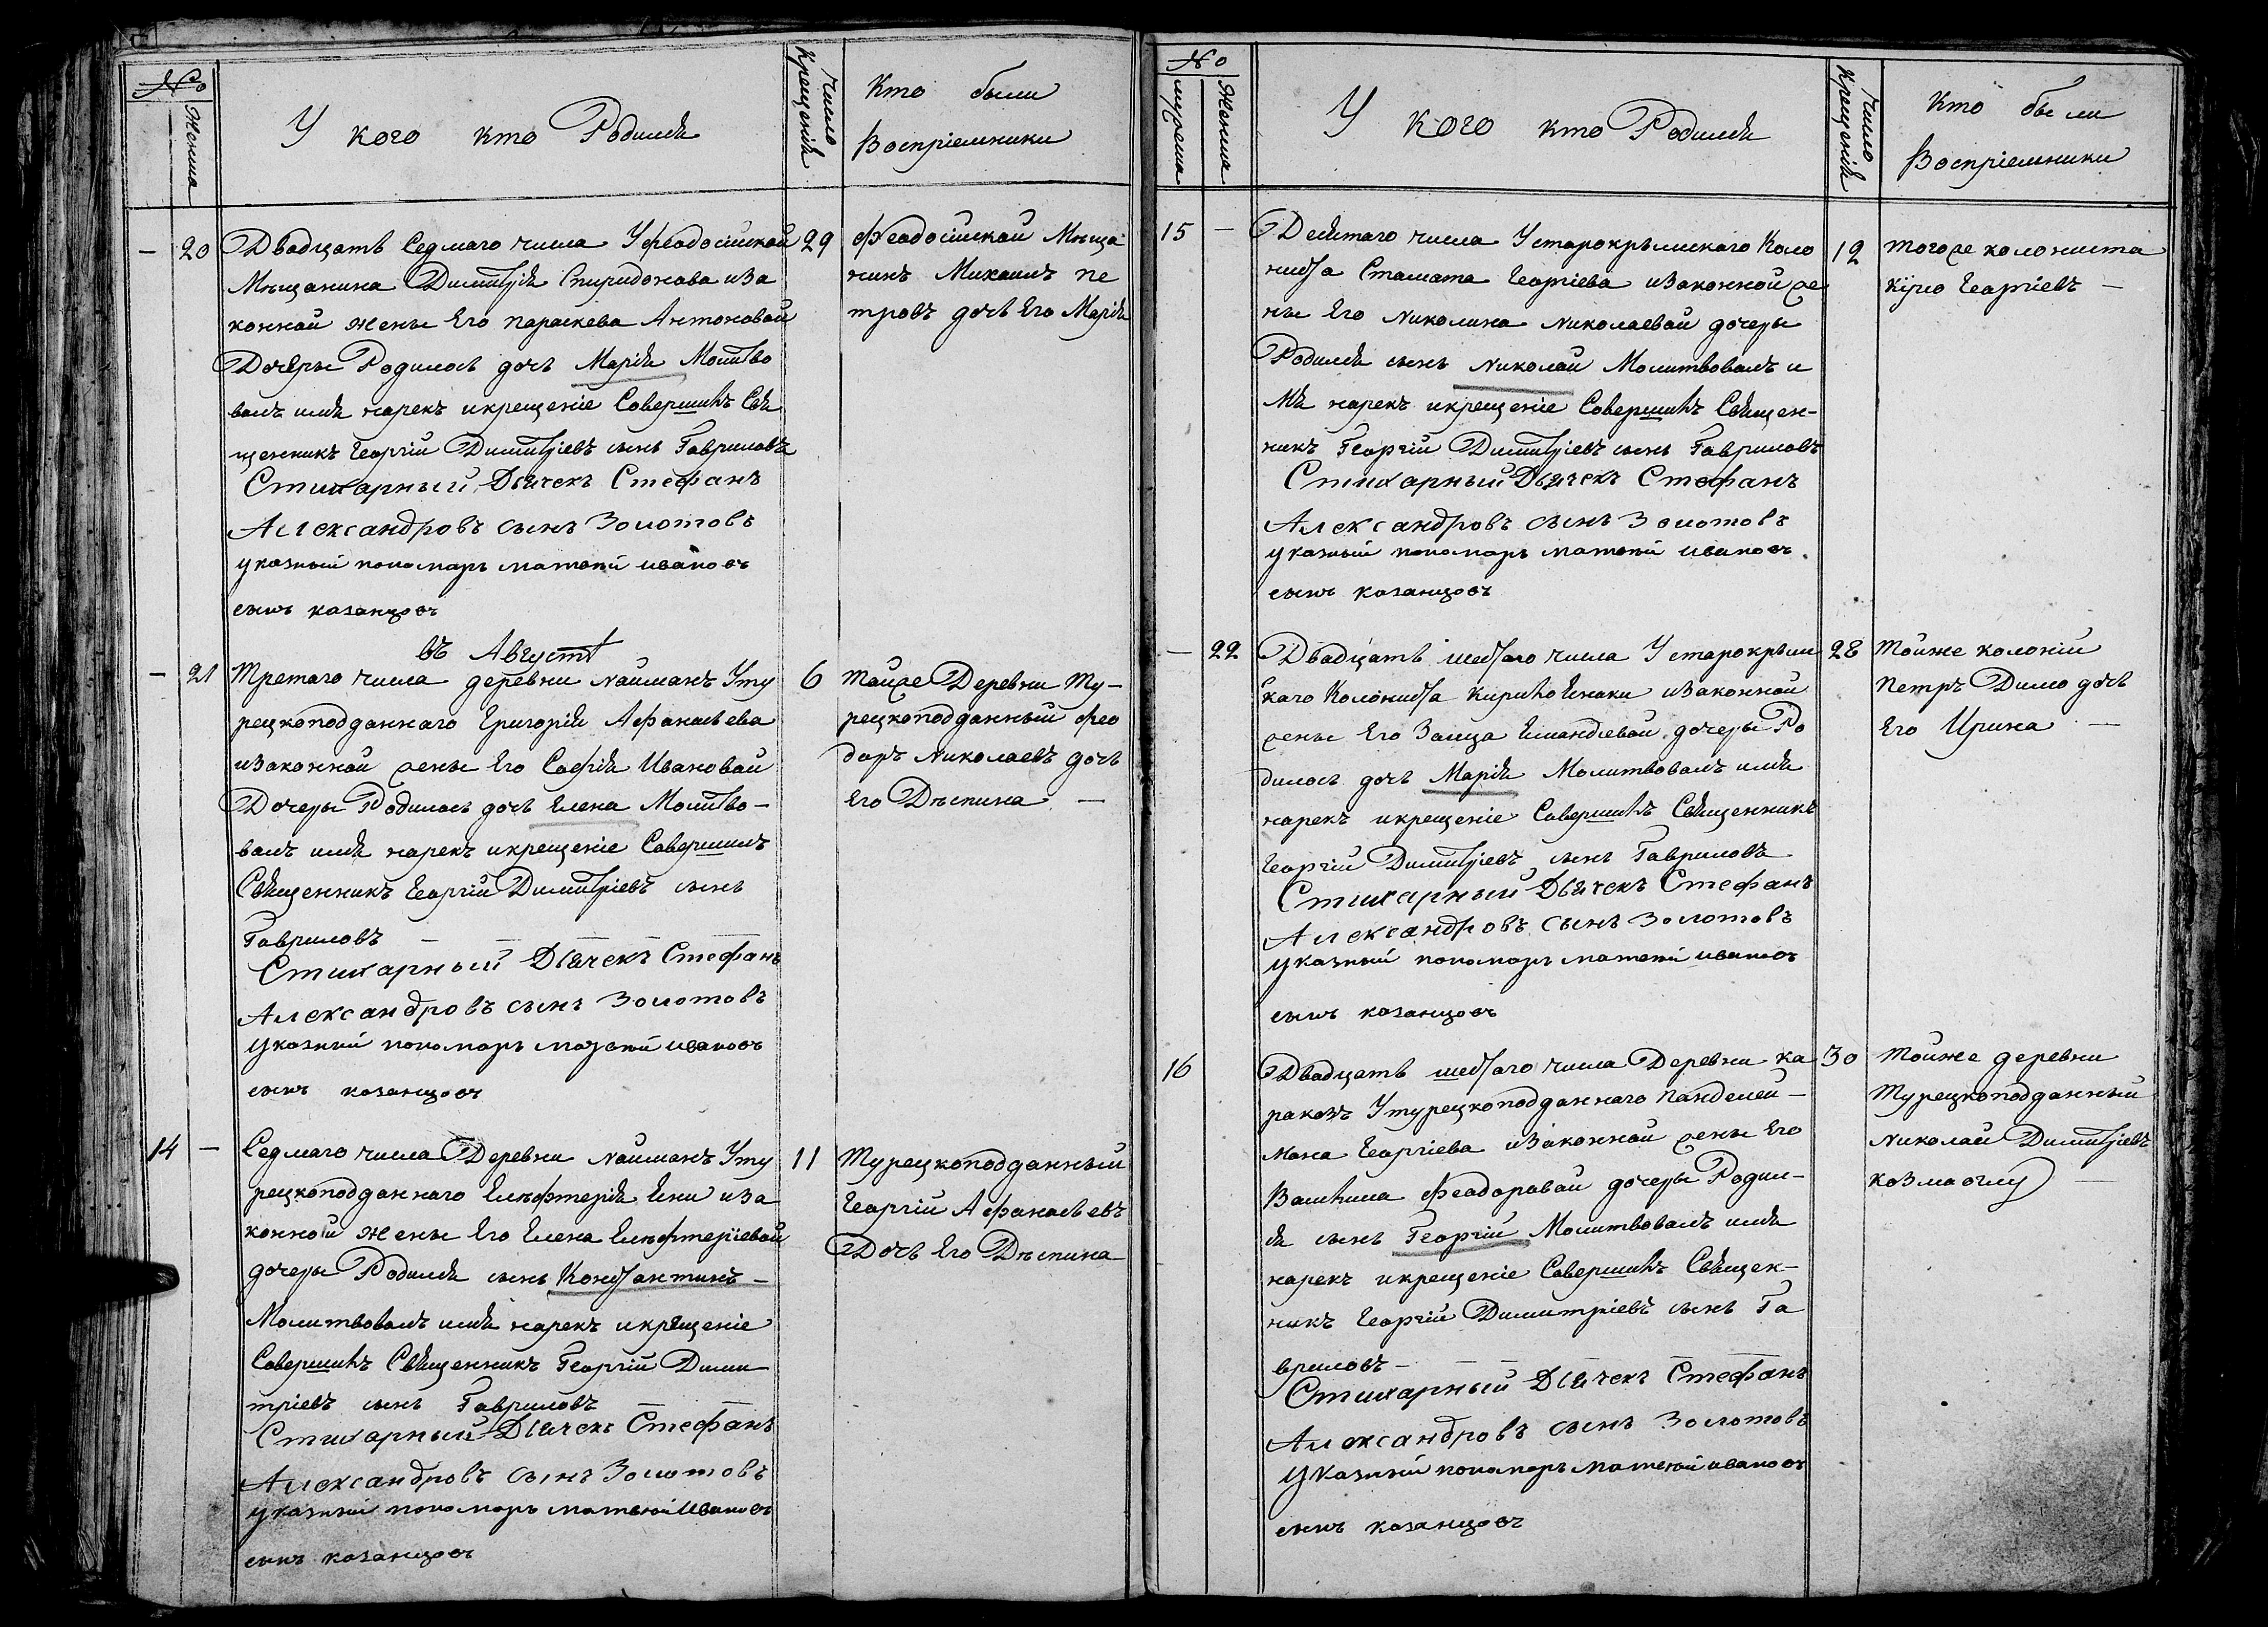 №
Женска
У кого кто Родился
Число
Крещенія
Кто были
Воспріемники
— 20
Двадцать Седмаго числа У Феодосійской
Мѣщанина Димитрія Спиридонова иза
конной жены Его Параскева Антоновай
Дочеры Родилось дочь Марія Молитво
валъ имя нарекъ икрещеніе Совершилъ Свя
щенникъ Георгій Димитріевъ сынъ Гавриловъ
Стихарный Дьячекъ Стефанъ
Александровъ сынъ Золотовъ
указный пономарь матвѣй ивановъ
сынъ казанцовъ
29
Феодосійскай Мѣща
нинъ Михаилъ Пе
тровъ дочь Его Марія
въ Августѣ
— 21
Третаго числа деревни Найманъ Уту
рецкоподданнаго Григорія Афанасьева
изаконнай жены Его Софія Ивановай
Дочеры Родилось дочь Елена Молитво—
валъ имя нарекъ икрещеніе Совершилъ
Священникъ Георгій Димитріевъ сынъ
Гавриловъ —
Стихарный Дьячекъ Стефанъ
Александровъ сынъ Золотовъ
указный пономарь матвѣй ивановъ
сынъ казанцовъ
6
Тайже Деревни Ту—
рецкоподданный Фео
доръ Николаевъ дочь
Его Дѣспина —
14 —
Седмаго числа Деревни Найманъ Уту
рецкоподданнаго Елѣфтерія Ени иза
конной жены Его Елена Елѣфтеріевой
дочеры Родился сынъ Константинъ—
Молитвовалъ имя нарекъ икрещеніе
Совершилъ Священникъ Георгій Дими
тріевъ сынъ Гавриловъ
Стихарный Дьячекъ Стефанъ
Александровъ сынъ Золотовъ
указный пономарь матвѣй Ивановъ
сынъ казанцовъ
11
Турецкоподданный
Георгій Афанасьевъ
Дочь Его Дѣспина
№
мужеска
Женска
У кого кто Родился
Число
Крещенія
Кто были
Воспріемники
15 —
Десятаго числа Устарокрымскаго Коло
ниста Стамата Георгіева изаконной же
ны Его Николина Николаевой дочеры
Родился сынъ Николай Молитвовалъ и
мя нарекъ икрещеніе Совершилъ Священ—
никъ Георгій Димитріевъ сынъ Гавриловъ
Стихарный Дьячекъ Стефанъ
Александровъ сынъ Золотовъ
указный пономарь матвѣй ивановъ.
сынъ казанцовъ
12
тогоже колониста
Кірго Георгіевъ —
— 22
Двадцать шестаго числа Устарокрым
скаго Колониста Енаки изаконной
жены Его дочеры Ро
дилось дочь Марія Молитвовалъ имя
нарекъ икрещеніе Совершилъ Священникъ
Георгій Димитріевъ сынъ Гавриловъ
Стихарный Дьячекъ Стефанъ
Александровъ сынъ Золотовъ
указный пономарь матвѣй ивановъ
сынъ казанцовъ
28
Тойже колоніи
Петръ Димо дочь
Его Ирина —
16
Двадцать шестаго числа Деревни ка
ракозъ Утурецкоподданнаго Панделей—
мона Георгіева изаконной жены Его
Феодоравай дочеры Родил—
ся сынъ Георгій Молитвовалъ имя
нарекъ икрещеніе Совершилъ Священ—
никъ Георгій Димитріевъ сынъ Га
вриловъ —
Стихарный Дьячекъ Стефанъ
Александровъ сынъ Золотовъ
Указный пономарь матвѣй ивановъ
сынъ казанцовъ
30
Тойже деревни
Турецкоподданный
Николай Димитріевъ
козмаоглу —